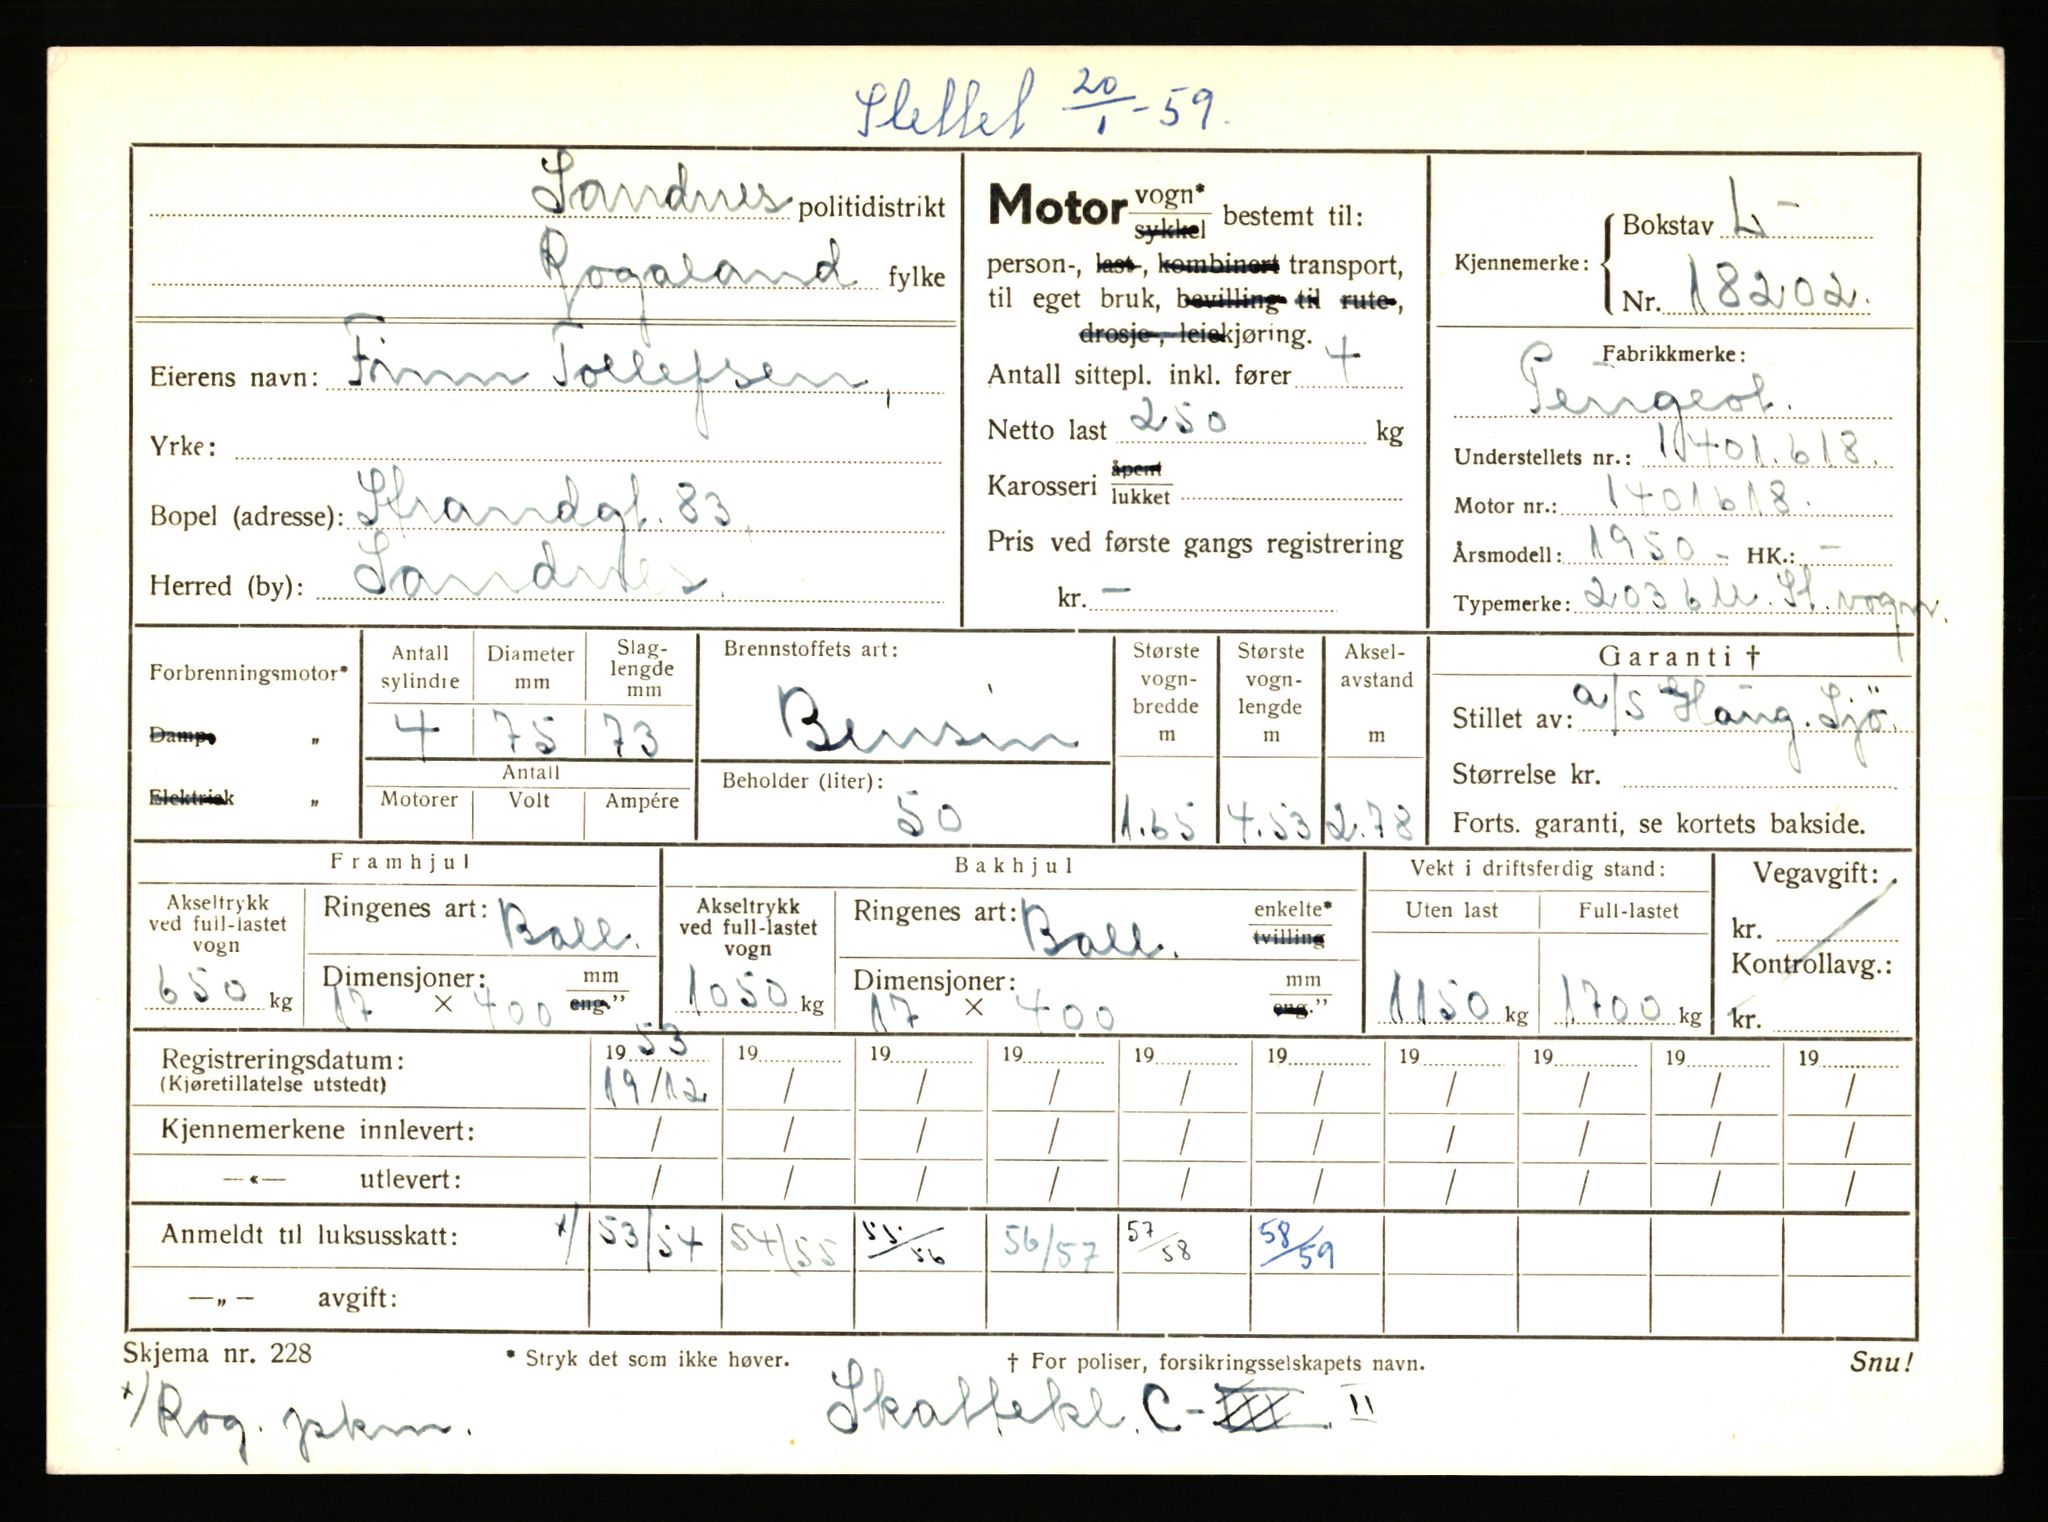 Slettet 20/1-59.
Sandnes politidistrikt
Rogaland fylke
Eierens navn: Finn Tollefsen,
Yrke:
Bopel (adresse): Strandgt. 83,
Herred (by): Sandnes.
Motor vogn* / sykkel bestemt til:
person-, last-, kombinert transport,
til eget bruk, bevilling til rute-,
drosje-, leiekjøring.
Antall sittepl. inkl. fører 4
Netto last 250 kg
Karosseri åpent / lukket
Pris ved første gangs registrering
kr. —
Kjennemerke: Bokstav L-
Nr. 18202.
Fabrikkmerke:
Peugeot.
Understellets nr.: 1401.618.
Motor nr.: 1401618.
Årsmodell: 1950 - HK.: -
Typemerke: 203 St.vogn.
Forbrenningsmotor*
Damp „
Elektrisk „
Antall sylindre Diameter mm Slag-lengde mm
4 75 73
Antall
Motorer Volt Ampére
Brennstoffets art:
Bensin
Beholder (liter):
50
Største vogn-bredde m Største vogn-lengde m Aksel-avstand m
1.65 4.53 2.78
Garanti †
Stillet av: a/s Haug. Sjö.
Størrelse kr.
Forts. garanti, se kortets bakside.
Framhjul
Akseltrykk ved full-lastet vogn
650 kg
Ringenes art: Ball.
Dimensjoner: mm / eng."
17 × 400
Bakhjul
Akseltrykk ved full-lastet vogn
1050 kg
Ringenes art: Ball. enkelte* / tvilling
Dimensjoner: mm / eng."
17 × 400
Vekt i driftsferdig stand:
Uten last Full-lastet
1150 kg 1700 kg
Vegavgift:
kr.
Kontrollavg.:
kr.
Registreringsdatum: 1953 19 19 19 19 19 19 19 19 19
(Kjøretillatelse utstedt) 19/12 / / / / / / / / /
Kjennemerkene innlevert: / / / / / / / / / /
—«— utlevert: / / / / / / / / / /
Anmeldt til luksusskatt: x/ 53/54 54/55 55/56 56/57 57/58 58/59
—„— avgift:
Skjema nr. 228 * Stryk det som ikke høver. † For poliser, forsikringsselskapets navn. Snu!
x/ Rog. pkm. Skattekl. C-III. II